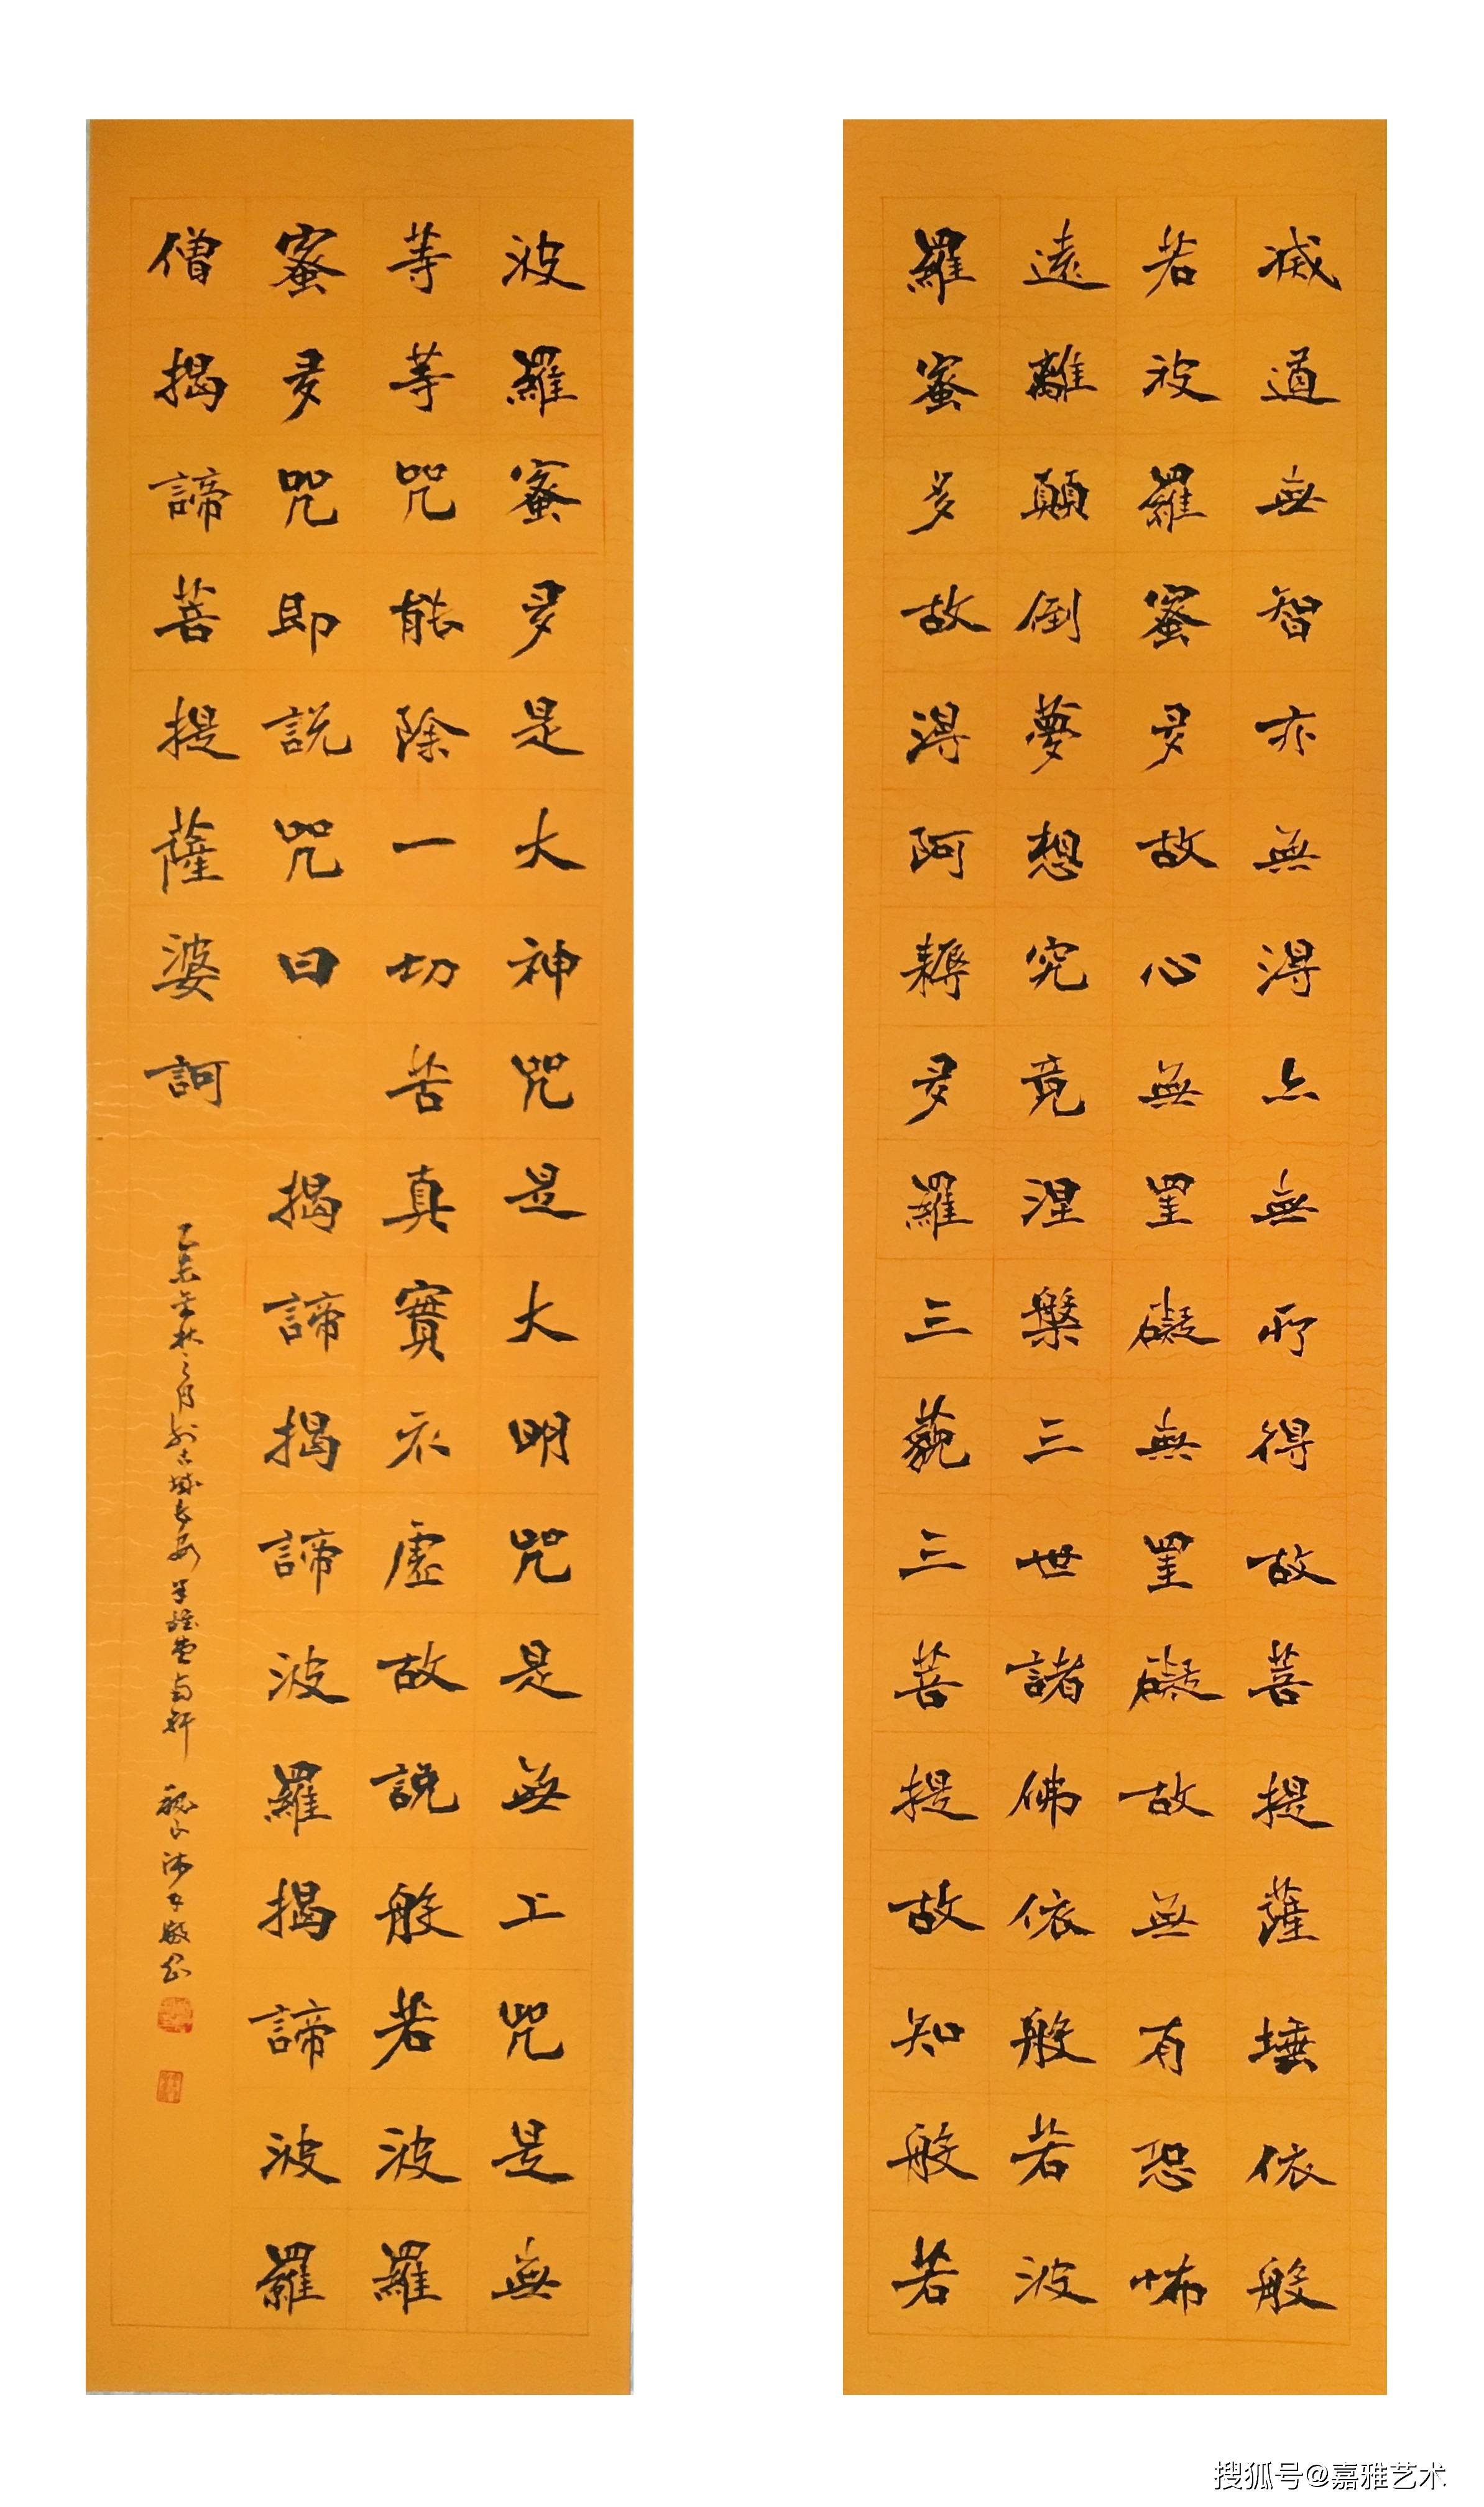 滅道無智亦無得以無所得故菩提薩埵依般
若波羅蜜多故心無罣礙無罣礙故無有恐怖
遠離顛倒夢想究竟涅槃三世諸佛依般若波
羅蜜多故得阿耨多羅三藐三菩提故知般若
波羅蜜多是大神咒是大明咒是無上咒是無
等等咒能除一切苦真實不虛故說般若波羅
蜜多咒即說咒曰 揭諦揭諦波羅揭諦波羅
僧揭諦菩提薩婆訶
乙未年秋之月於古城長安
搜狐号@嘉雅艺术